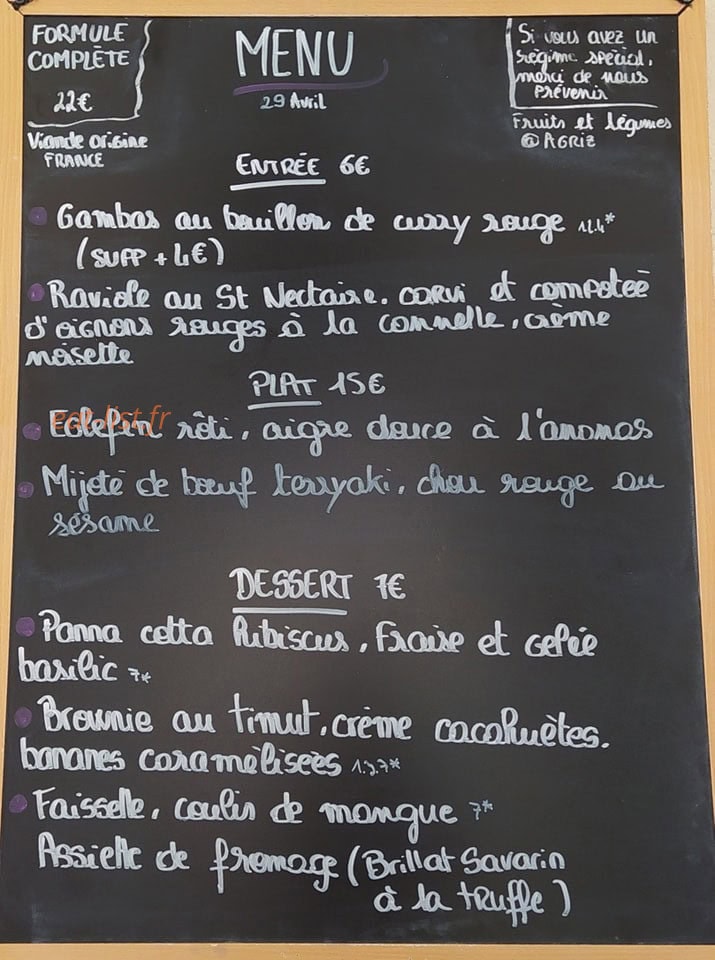 FORMULE
COMPLÈTE
22€
Viande origine
FRANCE
MENU
29 Avril
Si vous avez un
régime spécial,
merci de nous
Prévenir
Fruits et légumes
@ AGRIZ
ENTRÉE 6€
Gambas au bouillon de curry rouge
(SUPP + 4€)
Raviole au St Nectaire. carvi et compoteé
d'oignons rouges à la cannelle, crème
noisette
PLAT 15€
eat-list.fr
Eglefin rôti, aigre douce à l'ananas
Mijoté de bœuf terryaki, chou rouge au
sésame
DESSERT 7€
Panna cotta hibiscus, Fraise et Gelée
basilic 7*
Brownie au timut, crème cacahuètes.
bananes caramèlisées 1.3.7*
Faisselle, coulis de mangue 7*
Assiette de fromage (Brillat Savarin
à la truffe)